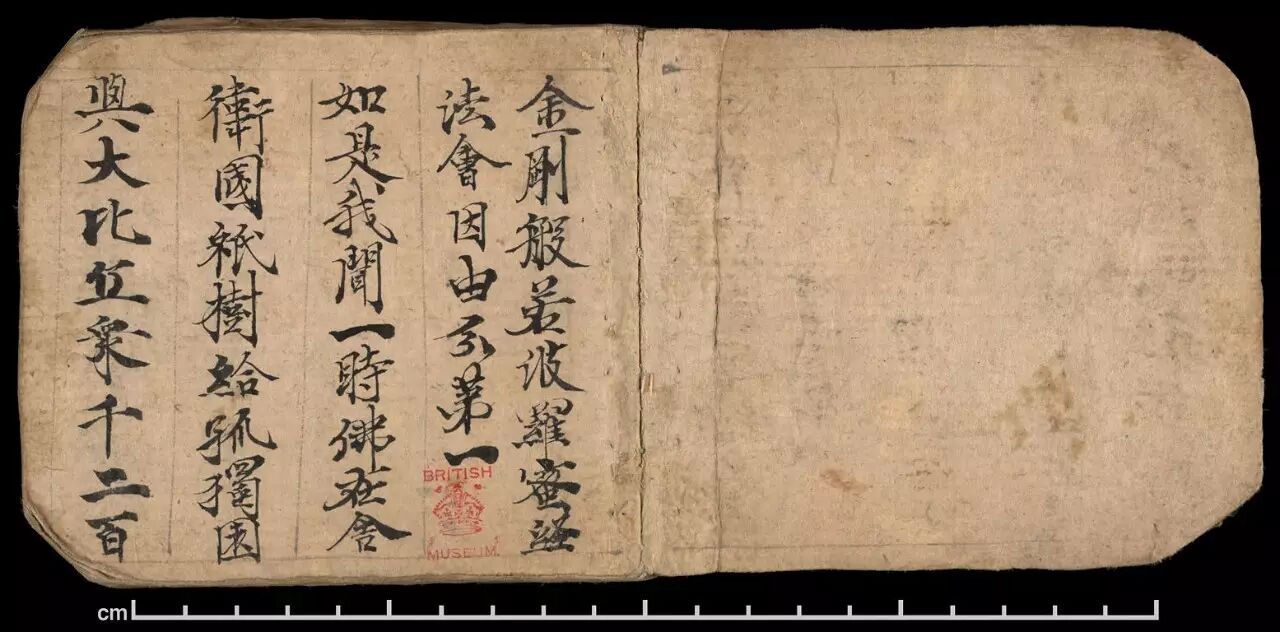 金剛般若波羅蜜経
法會因由分第一
如是我聞一時佛在舎
衛國祇樹給孤獨園
與大比丘衆千二百
BRITISH
MUSEUM
cm